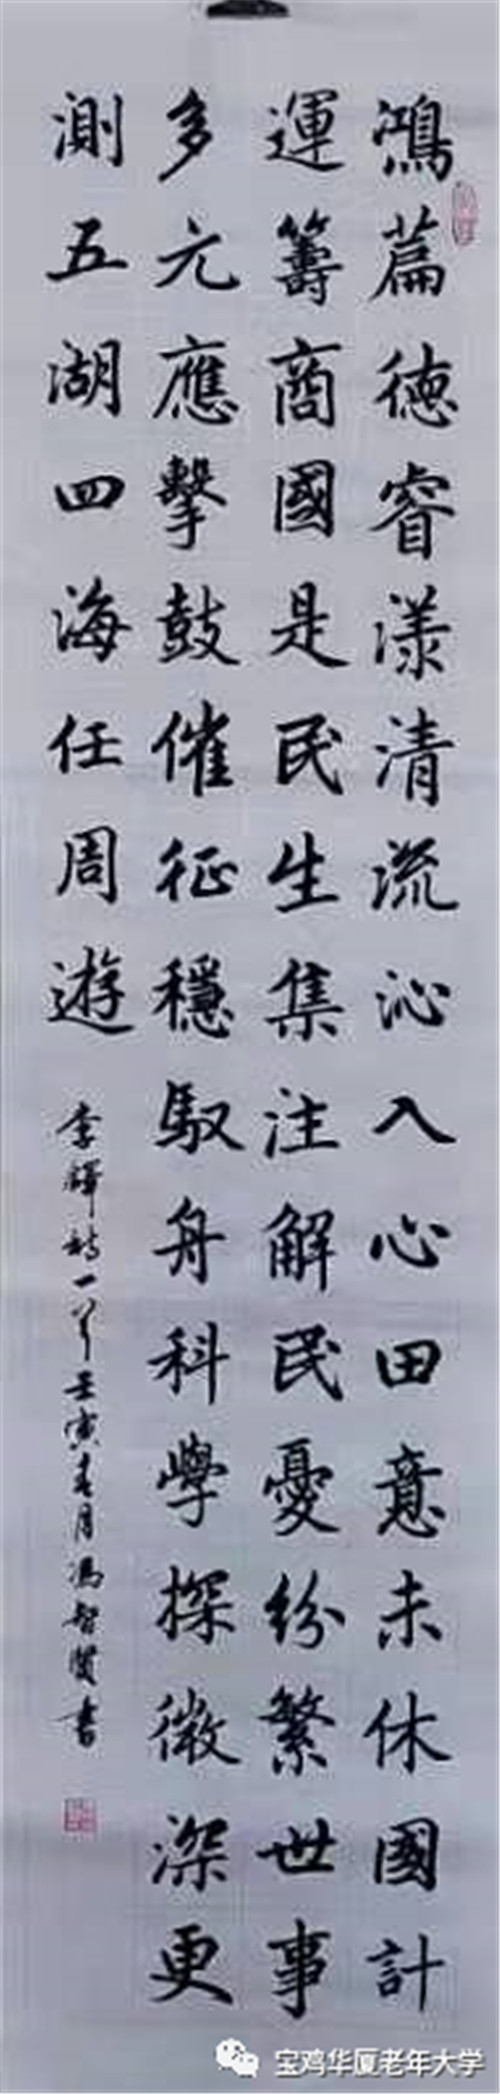 鴻篇德睿漾清流沁入心田意未休國計
運籌商國是民生集注解民憂紛繁世事
多元應擊鼓催征穩馭舟科學探微深更
測五湖四海任周遊
李鐸詩一首壬寅春月馮智賢書
宝鸡华厦老年大学